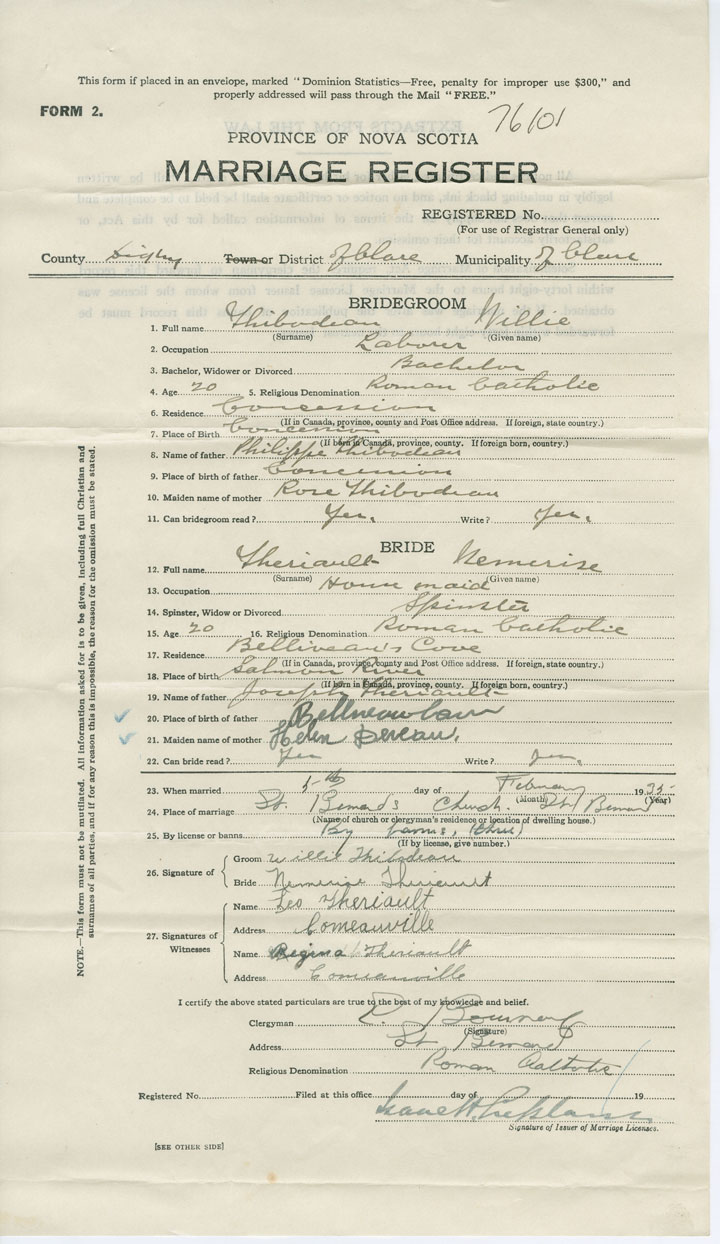 This form if placed in an envelope, marked "Dominion Statistics—Free, penalty for improper use $300," and
properly addressed will pass through the Mail "FREE."
FORM 2.
76101
PROVINCE OF NOVA SCOTIA
MARRIAGE REGISTER
REGISTERED No.
(For use of Registrar General only)
County Digby Town or District of Clare Municipality of Clare
BRIDEGROOM
1. Full name Thibodeau Willie
(Surname) (Given name)
2. Occupation Laborer
3. Bachelor, Widower or Divorced Bachelor
4. Age 20 5. Religious Denomination Roman Catholic
6. Residence Concession
(If in Canada, province, county and Post Office address. If foreign, state country.)
7. Place of Birth Concession
(If born in Canada, province, county. If foreign born, country.)
8. Name of father Philippe Thibodeau
9. Place of birth of father Concession
10. Maiden name of mother Rose Thibodeau
11. Can bridegroom read? Yes. Write? Yes.
BRIDE
12. Full name Theriault Nemerise
(Surname) (Given name)
13. Occupation House maid
14. Spinster, Widow or Divorced Spinster
15. Age 20 16. Religious Denomination Roman Catholic
17. Residence Belliveau's Cove
(If in Canada, province, county and Post Office address. If foreign, state country.)
18. Place of birth Salmon River
(If born in Canada, province, county. If foreign born, country.)
19. Name of father Joseph Theriault
20. Place of birth of father
21. Maiden name of mother Helen Dereau.
22. Can bride read? Yes Write? Yes.
23. When married 5th day of February 1935
(Month) (Year)
24. Place of marriage St. Bernard's Church. St. Bernard
(Name of church or clergyman's residence or location of dwelling house.)
25. By license or banns By banns, (three)
(If by license, give number.)
26. Signature of
Groom Willie Thibodeau
Bride Nemerise Theriault
27. Signatures of Witnesses
Name Leo Theriault
Address Comeauville
Name Regina Theriault
Address Comeauville
I certify the above stated particulars are true to the best of my knowledge and belief.
Clergyman
(Signature)
Address St. Bernard
Religious Denomination Roman Catholic
Registered No. Filed at this office day of 19
Signature of Issuer of Marriage Licenses.
[SEE OTHER SIDE]
NOTE.—This form must not be mutilated. All information asked for is to be given, including full Christian and
surnames of all parties, and if for any reason this is impossible, the reason for the omission must be stated.